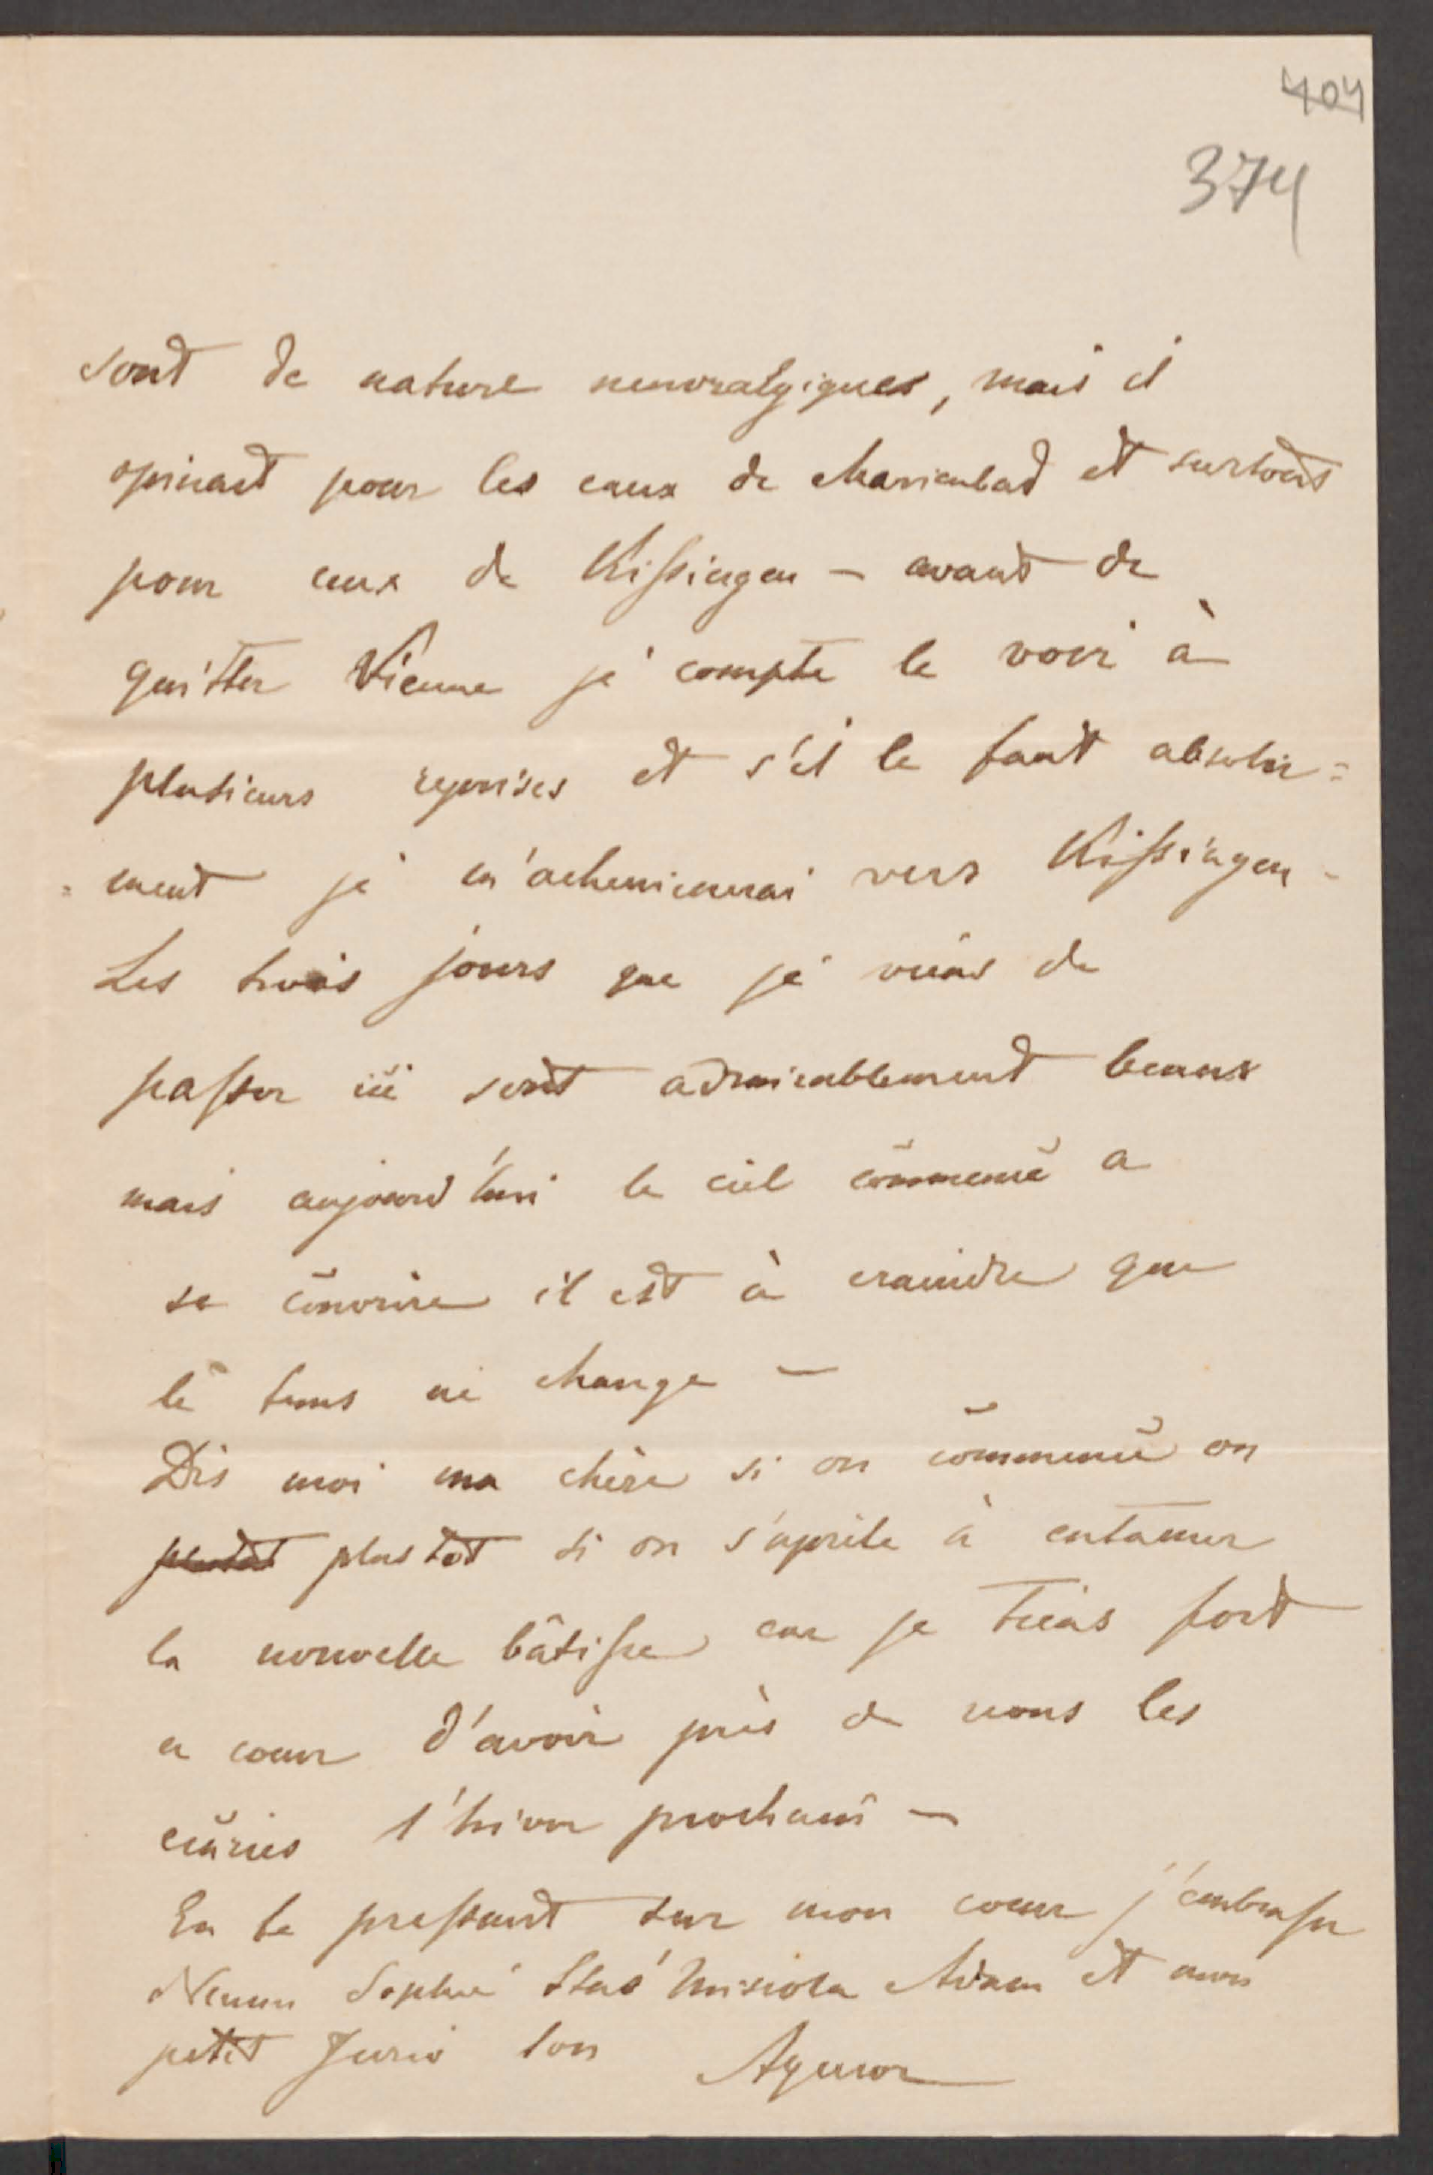 404
374
sont de nature nevralgiques, mais il
opinait pour les eaux de Marienbad et surtout
pour ceux de Kissingen – avant de
quitter Vienne je compte le voir à
plusieurs reprises et s'il le faut absolu=
=ment je m'acheminerai vers Kissingen –
Les trois jours que je viens de
passer ici sont admirablement beaux
mais aujourd'hui le ciel commence a
se couvrire il est à craindre que
le tems ne change –
Dis moi ma chère si on commence on
plustot si on s'aprête à entamer
la nouvelle bâtisse car je tiens fort
a coeur d'avoir près de nous les
écuries l'hiver prochain –
En te pressant sur mon coeur j'embrasse
Sophie Staś Misiola Adam et mon
petit Jurio ton Agenor